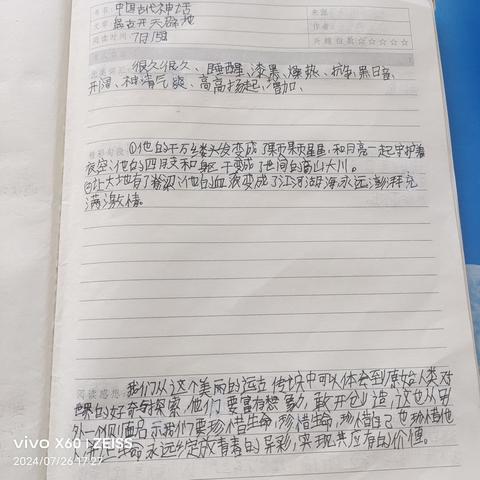 书名 中国古代神话
文章 盘古开天辟地
阅读时间 7月1日
来源
作者
兴趣指数☆☆☆☆☆
很久很久、睡醒、漆黑、燥热、抗争、黑白
开阔、神清气爽、高高扬起、增加、
精彩句段 ①他的千万缕头发变成了颗颗星星,和月亮一起守护着
夜空;他的四肢和躯干变成了世间的高山大川。
②让大地有了脊梁;他的血液变成了江河湖海永远澎湃充
满激情。
阅读感想 我们从这个美丽的远古传说中可以体会到原始人类对
世界的好奇与探索,他们要富有想象力,敢开创造,这也从另
外一侧面启示我们要珍惜生命,珍惜生命,珍惜自己也珍惜他
人,让生命永远绽放青春的异彩,实现其应有的价值。
vivo X60 | ZEISS
2024/07/26 17:27